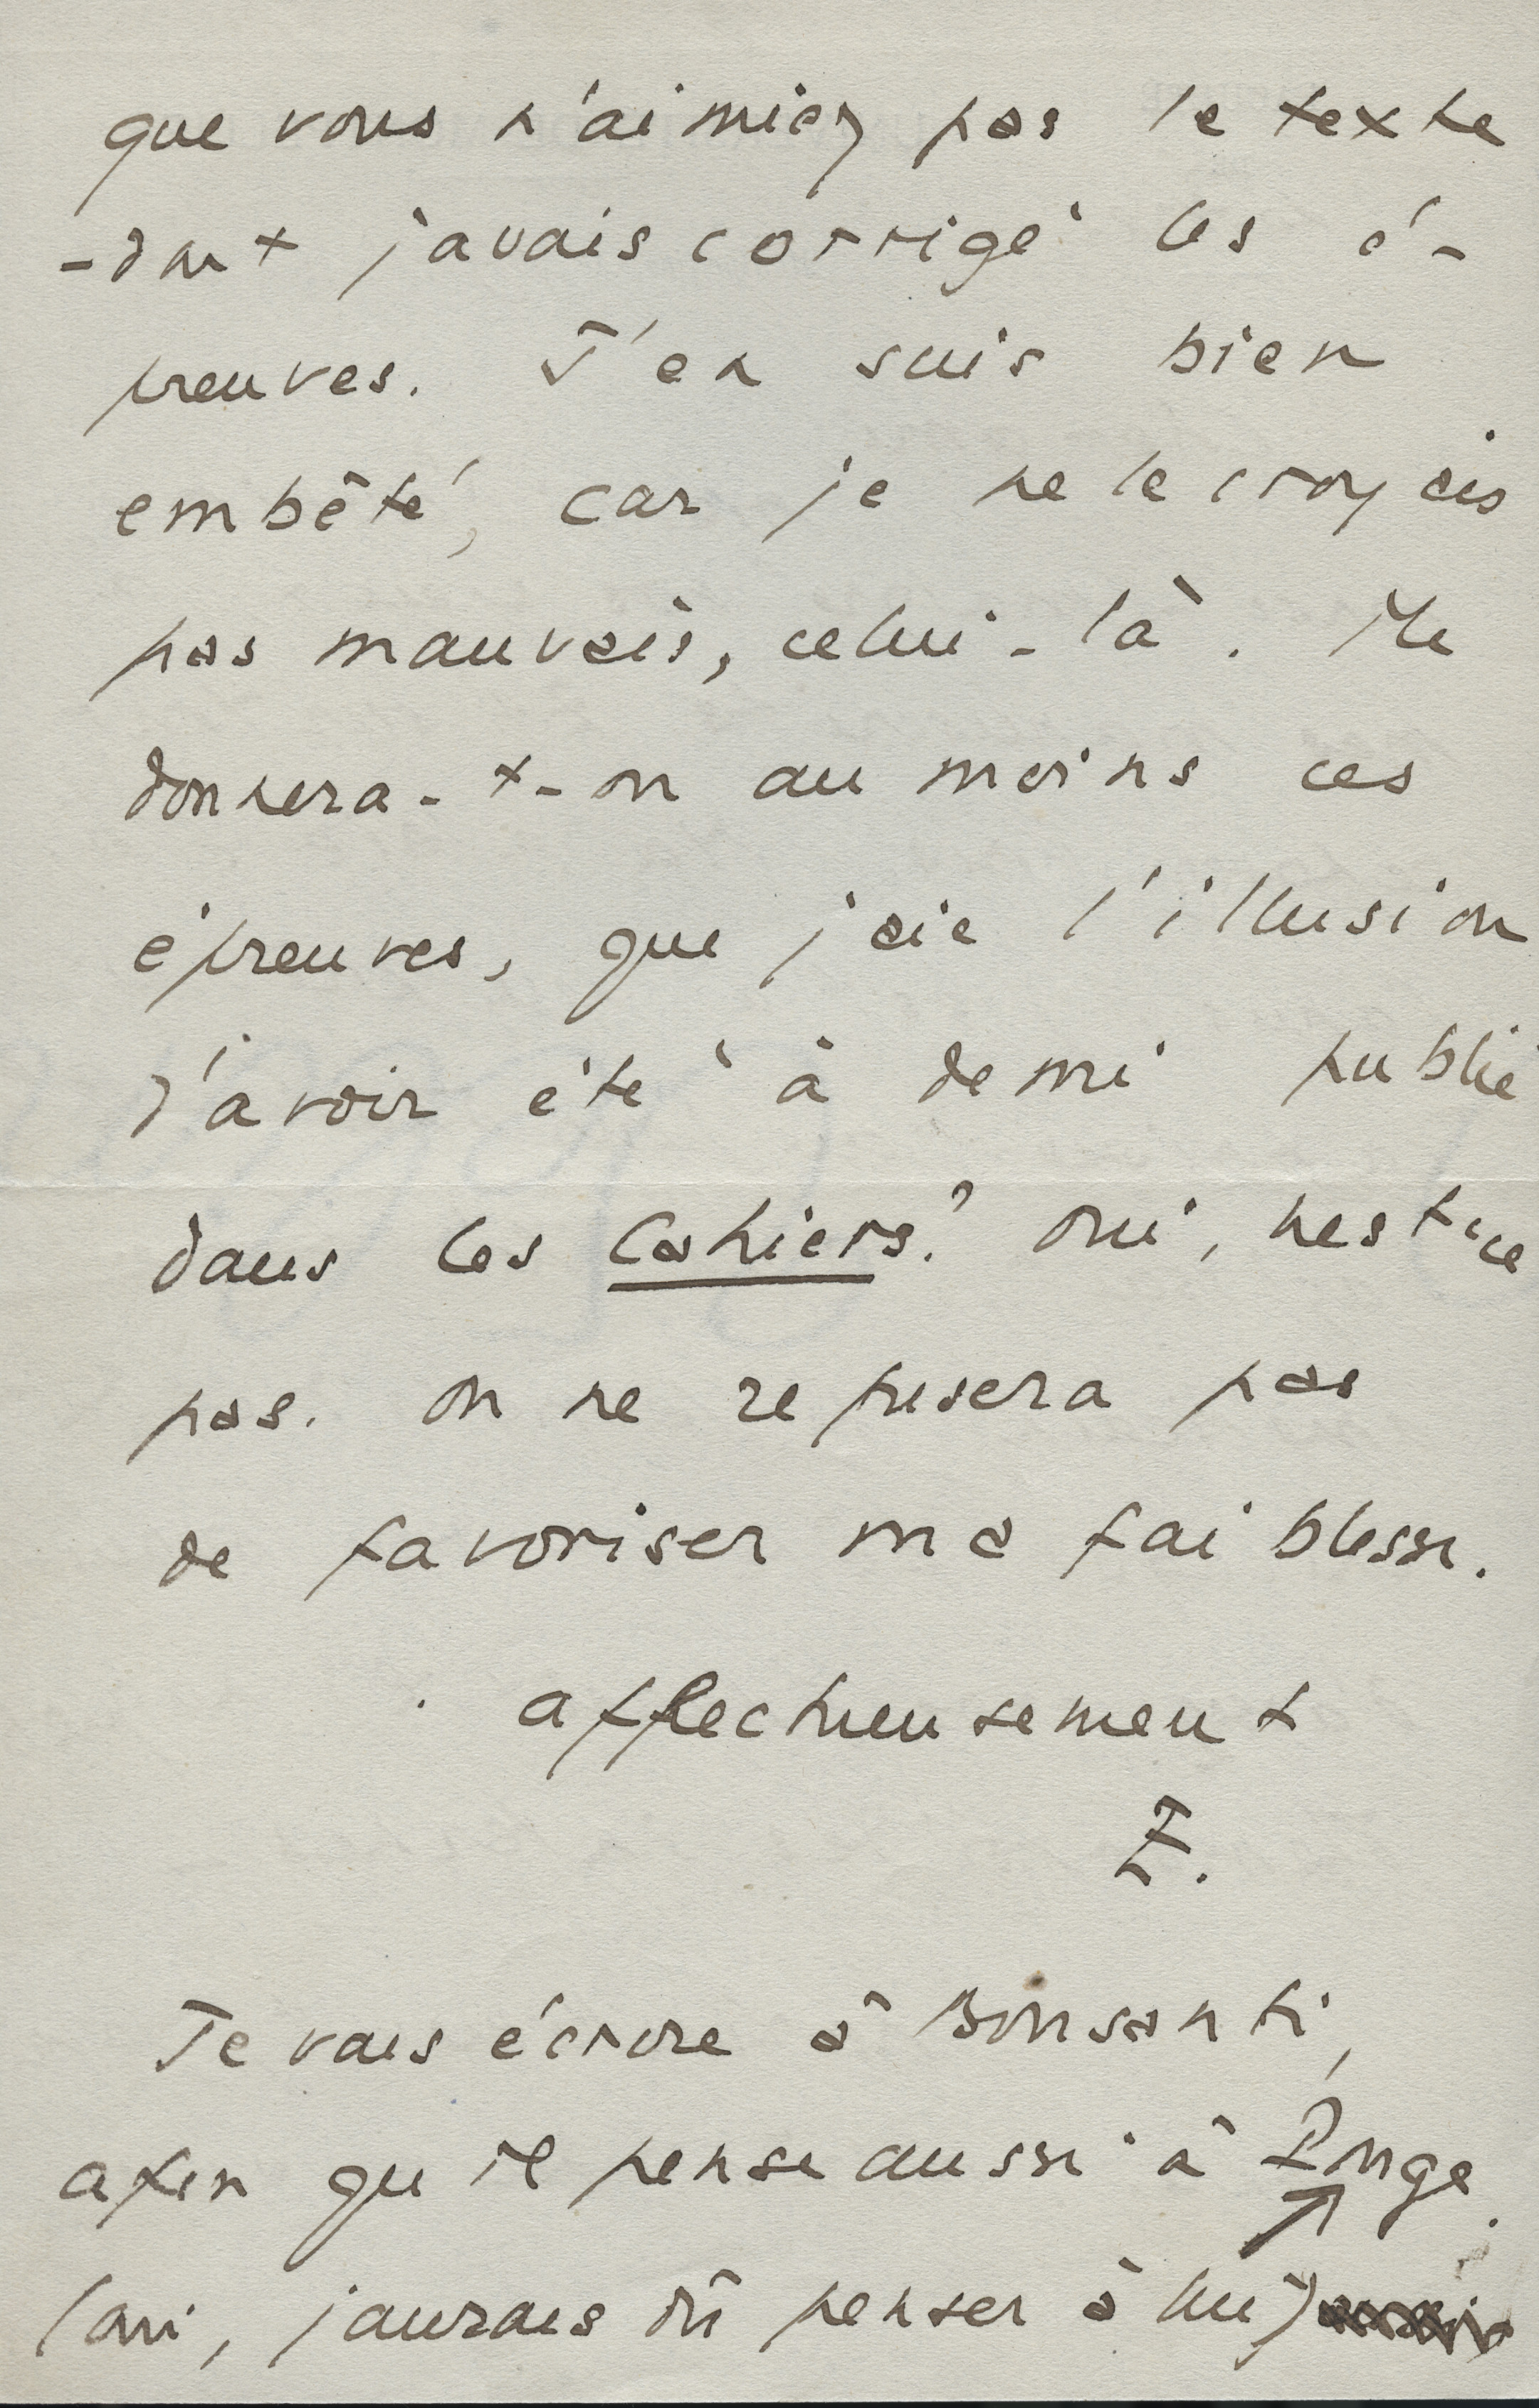 que vous n'aimiez pas le texte
-dont j'avais corrigé les é-
preuves. J'en suis bien
embêté, car je ne le croyais
pas mauvais, celui-là. Me
donnera-t-on au moins ces
épreuves, que j'aie l'illusion
d'avoir été à demi publié
dans les Cahiers? Oui, n'est ce
pas. On ne refusera pas
de favoriser ma faiblesse.
affectueusement
F.
Je vais écrire à Bonsanti,
afin qu'il pense aussi à Ponge.
(oui, j'aurais dû penser à lui)